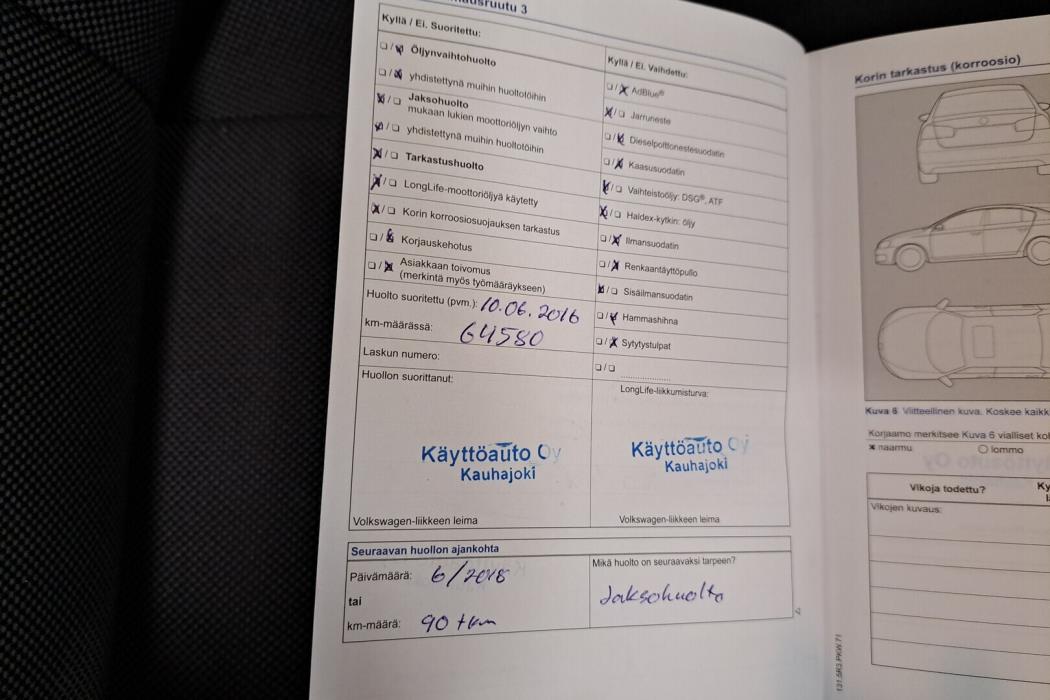 ruutu 3
Kyllä / Ei. Suoritettu:
Öljynvaihtohuolto
yhdistettynä muihin huoltotöihin
Jaksohuolto
mukaan lukien moottoriöljyn vaihto
yhdistettynä muihin huoltotöihin
Tarkastushuolto
LongLife-moottoriöljyä käytetty
Korin korroosiosuojauksen tarkastus
Korjauskehotus
Asiakkaan toivomus
(merkintä myös työmääräykseen)
Huolto suoritettu (pvm.): 10.06.2016
km-määrässä: 64580
Laskun numero:
Huollon suorittanut:
Käyttöauto Oy
Kauhajoki
Volkswagen-liikkeen leima
Kyllä / Ei. Vaihdettu:
AdBlue®
Jarruneste
Dieselpolttonestesuodatin
Kaasusuodatin
Vaihteistoöljy: DSG®, ATF
Haldex-kytkin: öljy
Ilmansuodatin
Renkaantäyttöpullo
Sisäilmansuodatin
Hammashihna
Sytytystulpat
LongLife-liikkumisturva:
Käyttöauto Oy
Kauhajoki
Volkswagen-liikkeen leima
Seuraavan huollon ajankohta
Päivämäärä: 6/2018
tai
km-määrä: 90 tkm
Mikä huolto on seuraavaksi tarpeen?
Jaksohuolto
Korin tarkastus (korroosio)
Kuva 6 Viitteellinen kuva. Koskee kaikk
Korjaamo merkitsee Kuva 6 vialliset ko
naarmu
lommo
Vikoja todettu?
Ky
Vikojen kuvaus:
131.5R3.PKW.71